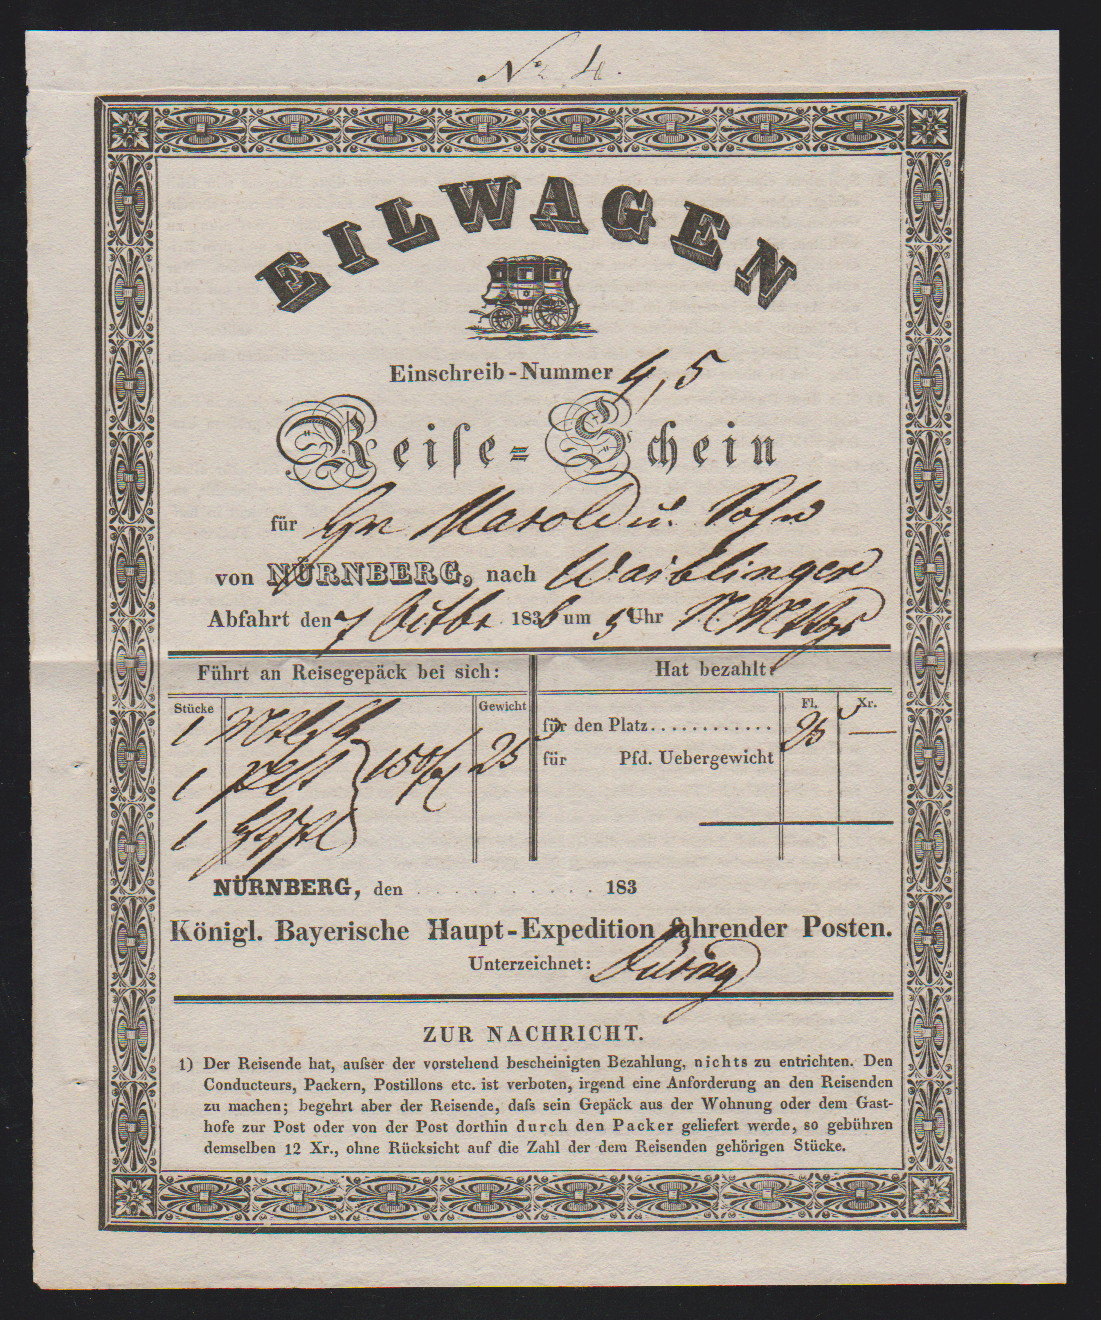 No 4.
EILWAGEN
Einschreib-Nummer 4, 5
Reise-Schein
für Hrn Marold u. Sohn
von NÜRNBERG, nach Waiblingen
Abfahrt den 7 Octbr 1836 um 5 Uhr
Führt an Reisegepäck bei sich:
Hat bezahlt:
Stücke
Gewicht
Fl.
Xr.
1
1
1
25
für den Platz............
25
für Pfd. Uebergewicht
NÜRNBERG, den . . . . . . . . . . . 183
Königl. Bayerische Haupt-Expedition fahrender Posten.
Unterzeichnet:
ZUR NACHRICHT.
1) Der Reisende hat, auſser der vorstehend bescheinigten Bezahlung, nichts zu entrichten. Den
Conducteurs, Packern, Postillons etc. ist verboten, irgend eine Anforderung an den Reisenden
zu machen; begehrt aber der Reisende, daſs sein Gepäck aus der Wohnung oder dem Gast-
hofe zur Post oder von der Post dorthin durch den Packer geliefert werde, so gebühren
demselben 12 Xr., ohne Rücksicht auf die Zahl der dem Reisenden gehörigen Stücke.